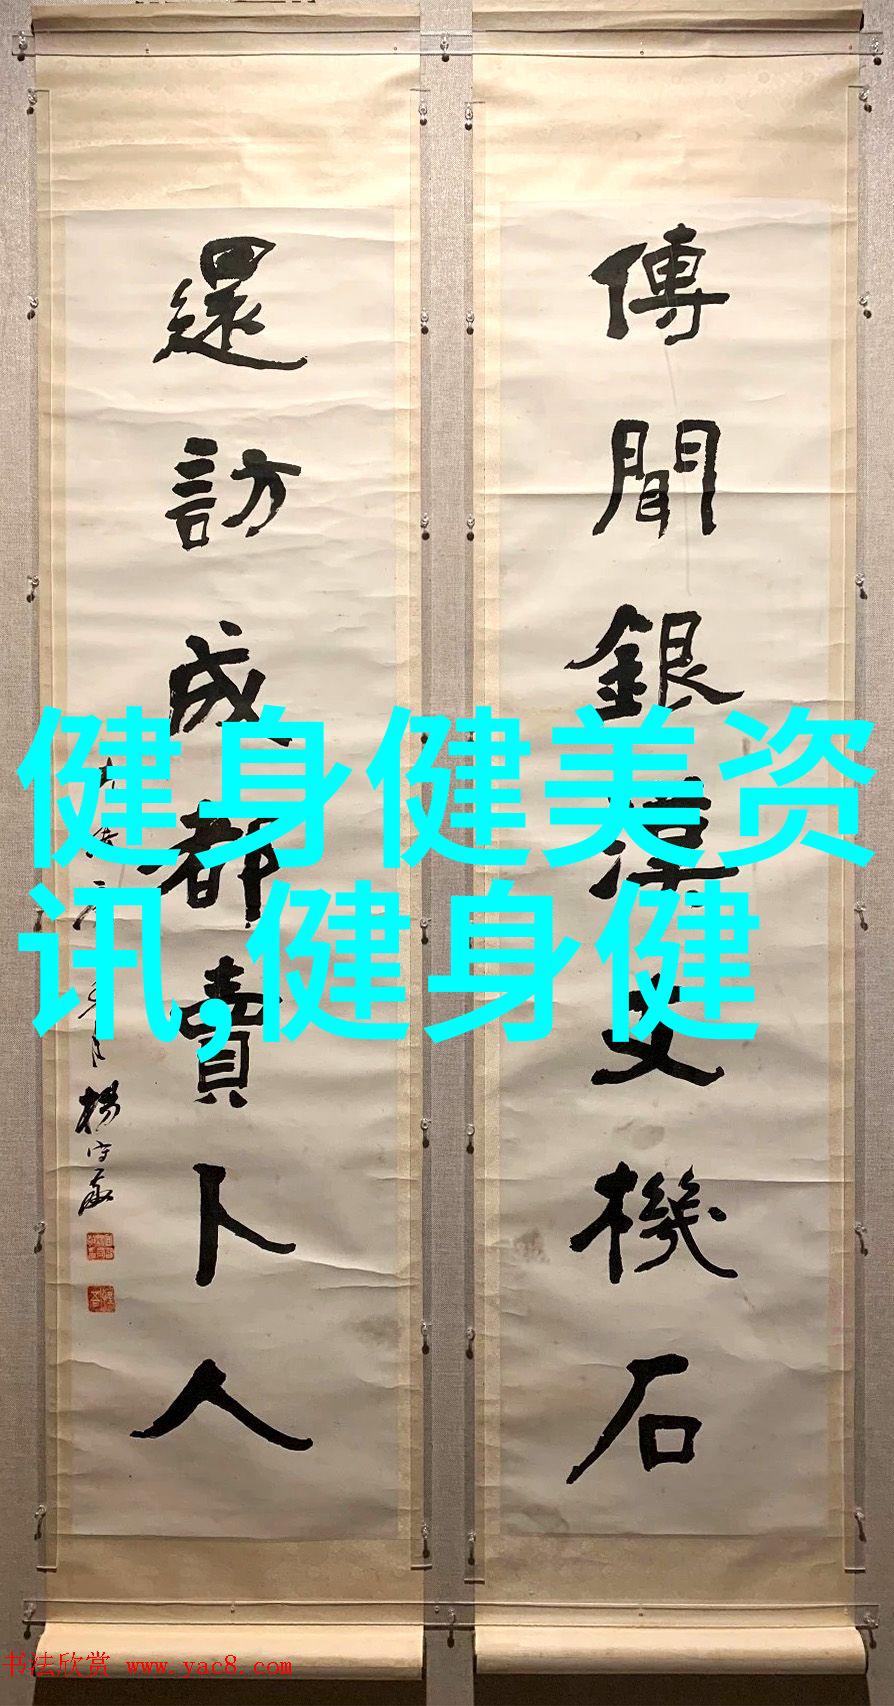 傳聞銀漢支機石
還訪成都賣卜人
楊守敬
健身健美资
讯,健身健
书法欣赏 www.yac8.com